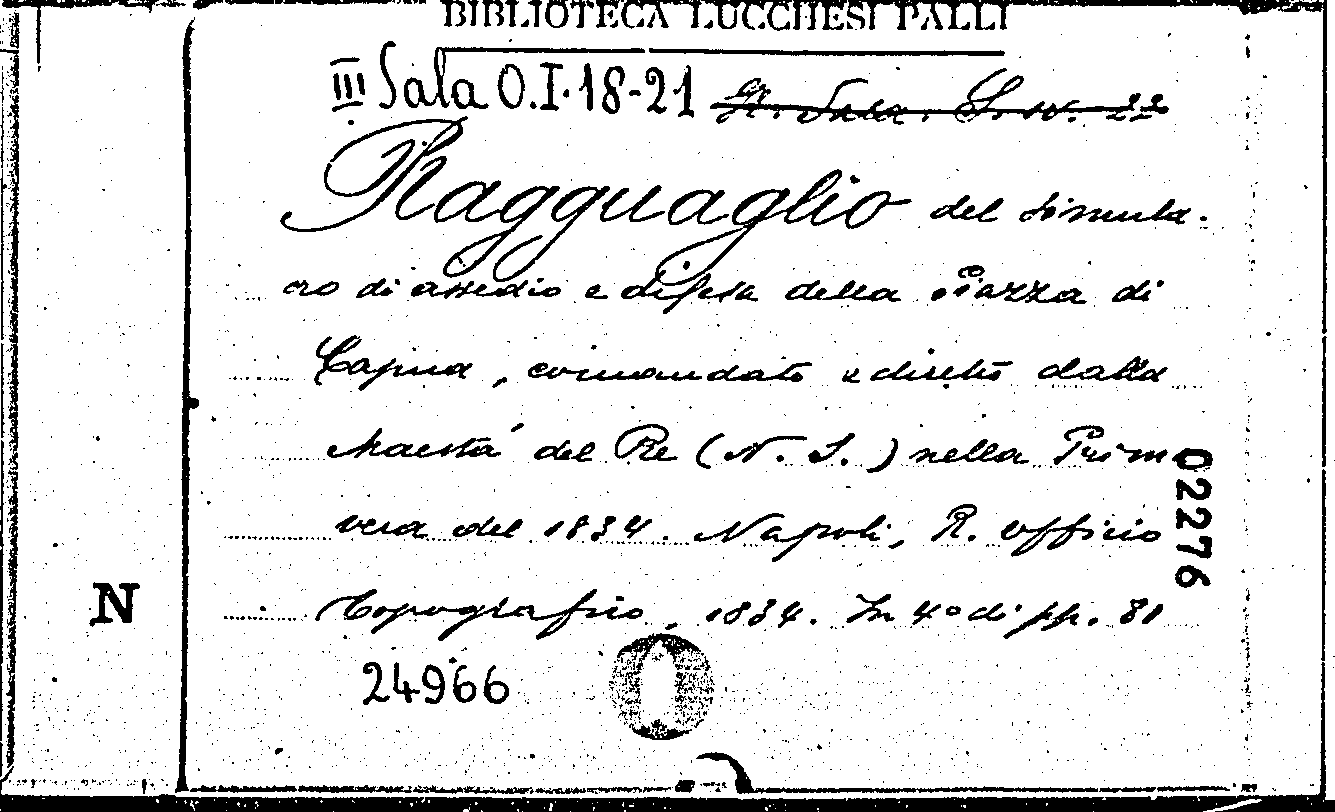 BIBLIOTECA LUCCHESI PALLI
III Sala O.I.18-21
Ragguaglio del simula-
cro di assedio e difesa della Piazza di
Capua, comandato e diretto dalla
Maestà del Re (N. S.) nella Prima
vera del 1834. Napoli, R. Officio
Topografico, 1834. In 4º di pp. 81
N
02276
24966